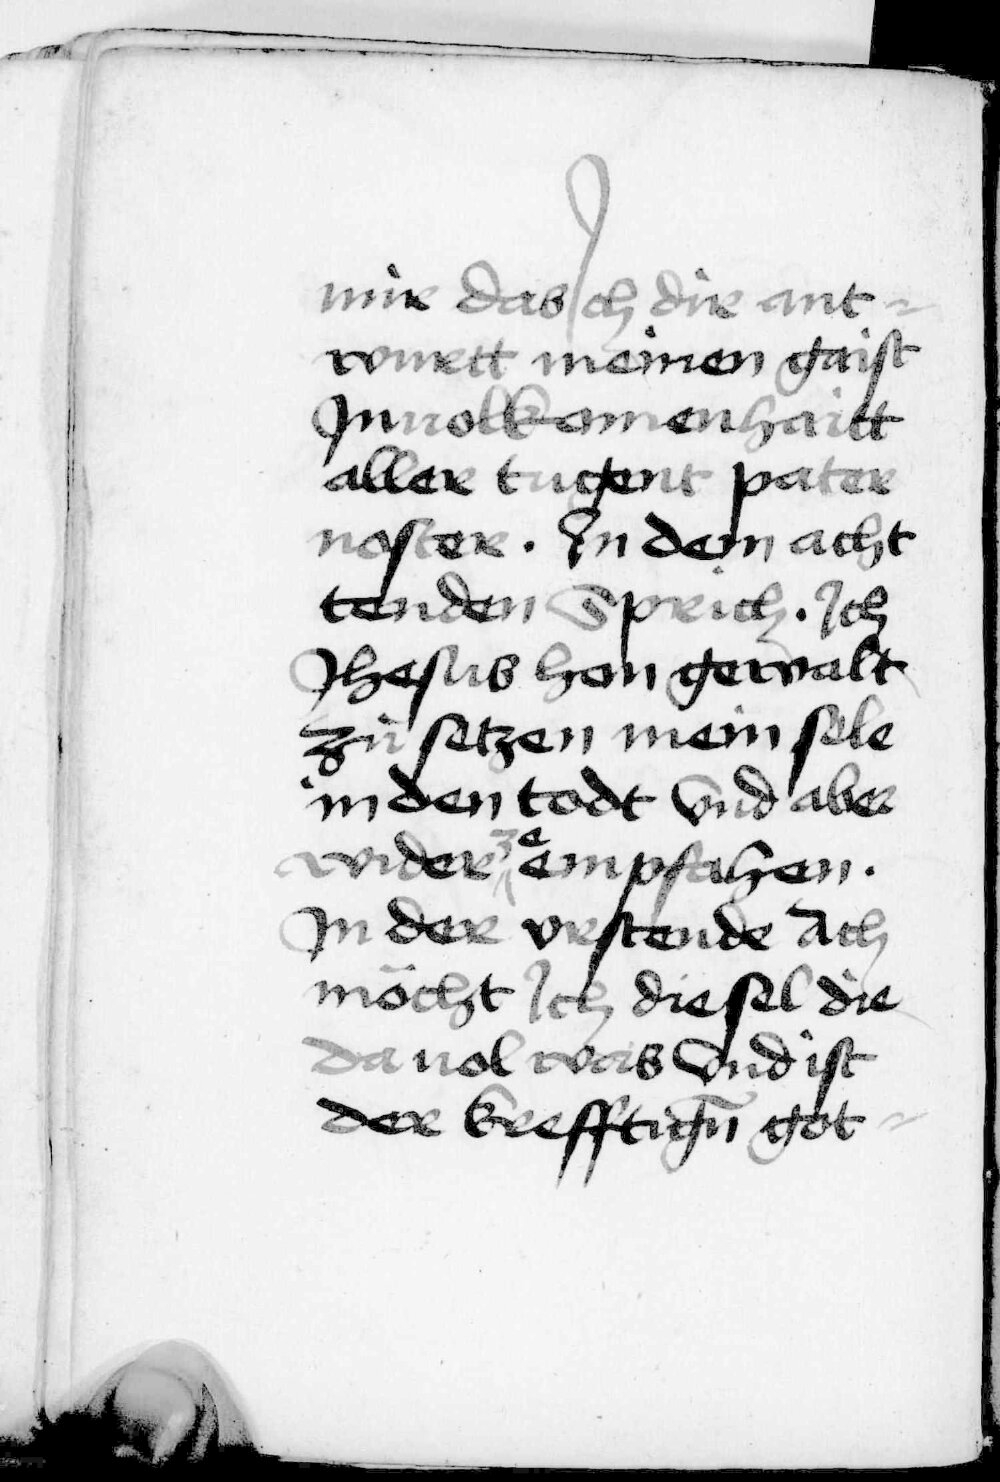 mir das Jch dir ant-
wurtt meinen gaist
Jn uolkomenhaitt
aller tugent pater
noster. In dem acht
tenden Sprich. Jch
Jhesus hon gewalt
zů setzen mein sele
in den todt vnd aber
wider ze empfahen.
Jn der vrstende Ach
möcht Jch die sel die
da uol was vnd ist
der krefftigñ got-